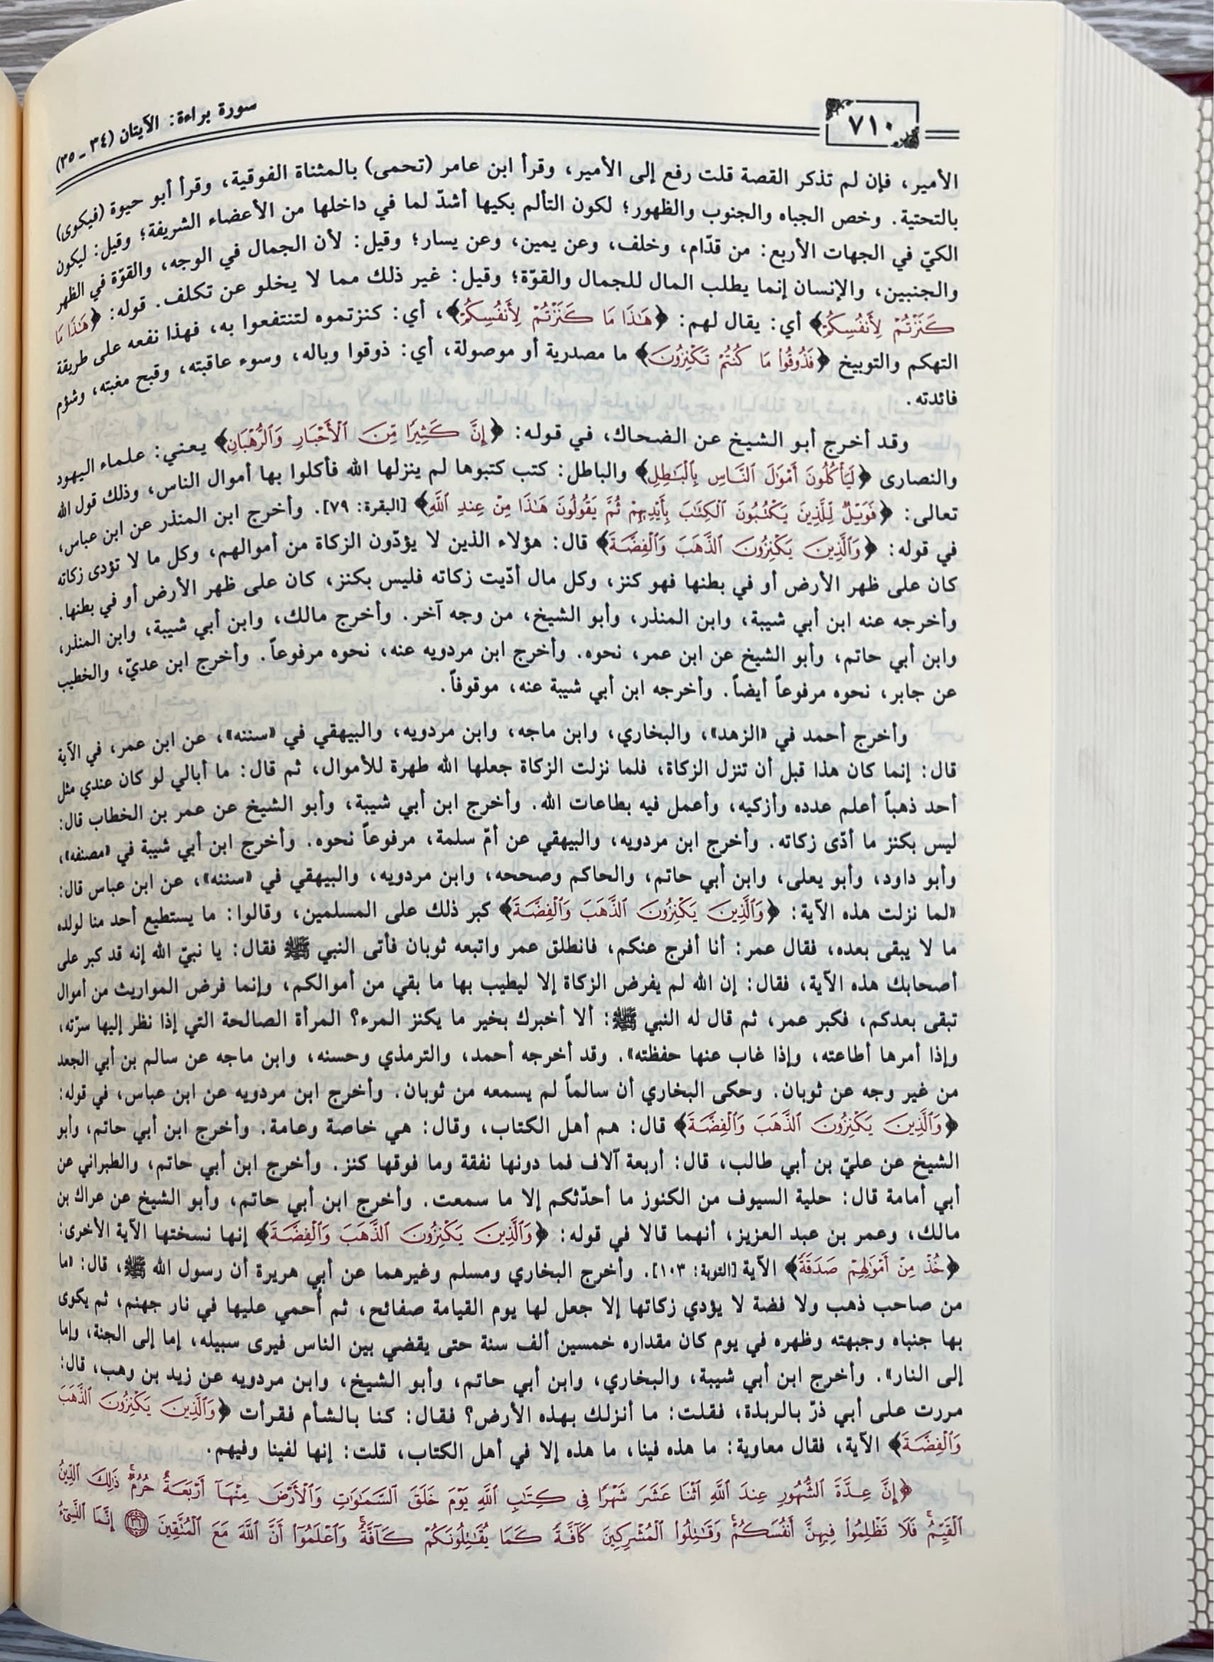 ٧١٠
سورة براءة: الآيتان (٣٤ ـ ٣٥)
الأمير، فإن لم تذكر القصة قلت رفع إلى الأمير، وقرأ ابن عامر (تحمى) بالمثناة الفوقية، وقرأ أبو حيوة (فيكوى)
بالتحتية. وخص الجباه والجنوب والظهور؛ لكون التألم بكيها أشدّ لما في داخلها من الأعضاء الشريفة؛ وقيل: ليكون
الكيّ في الجهات الأربع: من قدّام، وخلف، وعن يمين، وعن يسار؛ وقيل: لأن الجمال في الوجه، والقوّة في الظهر
والجنبين، والإنسان إنما يطلب المال للجمال والقوّة؛ وقيل: غير ذلك مما لا يخلو عن تكلف. قوله: ﴿هَٰذَا مَا
كَنَزْتُمْ لِأَنفُسِكُمْ﴾ أي: يقال لهم: ﴿هَٰذَا مَا كَنَزْتُمْ لِأَنفُسِكُمْ﴾، أي: كنزتموه لتنتفعوا به، فهذا نفعه على طريقة
التهكم والتوبيخ ﴿فَذُوقُوا مَا كُنتُمْ تَكْنِزُونَ﴾ ما مصدرية أو موصولة، أي: ذوقوا وباله، وسوء عاقبته، وقبح مغبته، وشؤم
فائدته.
وقد أخرج أبو الشيخ عن الضحاك، في قوله: ﴿إِنَّ كَثِيرًا مِّنَ الْأَحْبَارِ وَالرُّهْبَانِ﴾ يعني: علماء اليهود
والنصارى ﴿لَيَأْكُلُونَ أَمْوَٰلَ النَّاسِ بِالْبَٰطِلِ﴾ والباطل: كتب كتبوها لم ينزلها الله فأكلوا بها أموال الناس، وذلك قول الله
تعالى: ﴿فَوَيْلٌ لِّلَّذِينَ يَكْتُبُونَ الْكِتَٰبَ بِأَيْدِيهِمْ ثُمَّ يَقُولُونَ هَٰذَا مِنْ عِندِ اللَّهِ﴾ [البقرة: ٧٩]. وأخرج ابن المنذر عن ابن عباس،
في قوله: ﴿وَالَّذِينَ يَكْنِزُونَ الذَّهَبَ وَالْفِضَّةَ﴾ قال: هؤلاء الذين لا يؤدّون الزكاة من أموالهم، وكل ما لا تؤدى زكاته
كان على ظهر الأرض أو في بطنها فهو كنز، وكل مال أدّيت زكاته فليس بكنز، كان على ظهر الأرض أو في بطنها.
وأخرجه عنه ابن أبي شيبة، وابن المنذر، وأبو الشيخ، من وجه آخر. وأخرج مالك، وابن أبي شيبة، وابن المنذر،
وابن أبي حاتم، وأبو الشيخ عن ابن عمر، نحوه. وأخرج ابن مردويه عنه، نحوه مرفوعاً. وأخرج ابن عديّ، والخطيب
عن جابر، نحوه مرفوعاً أيضاً. وأخرجه ابن أبي شيبة عنه، موقوفاً.
وأخرج أحمد في «الزهد»، والبخاري، وابن ماجه، وابن مردويه، والبيهقي في «سننه»، عن ابن عمر، في الآية
قال: إنما كان هذا قبل أن تنزل الزكاة، فلما نزلت الزكاة جعلها الله طهرة للأموال، ثم قال: ما أبالي لو كان عندي مثل
أحد ذهباً أعلم عدده وأزكيه، وأعمل فيه بطاعات الله. وأخرج ابن أبي شيبة، وأبو الشيخ عن عمر بن الخطاب قال:
ليس بكنز ما أدّى زكاته. وأخرج ابن مردويه، والبيهقي عن أمّ سلمة، مرفوعاً نحوه. وأخرج ابن أبي شيبة في «مصنفه»،
وأبو داود، وأبو يعلى، وابن أبي حاتم، والحاكم وصححه، وابن مردويه، والبيهقي في «سننه»، عن ابن عباس قال:
«لما نزلت هذه الآية: ﴿وَالَّذِينَ يَكْنِزُونَ الذَّهَبَ وَالْفِضَّةَ﴾ كبر ذلك على المسلمين، وقالوا: ما يستطيع أحد منا لولده
ما لا يبقى بعده، فقال عمر: أنا أفرج عنكم، فانطلق عمر واتبعه ثوبان فأتى النبي ﷺ فقال: يا نبيّ الله إنه قد كبر على
أصحابك هذه الآية، فقال: إن الله لم يفرض الزكاة إلا ليطيب بها ما بقي من أموالكم، وإنما فرض المواريث من أموال
تبقى بعدكم، فكبر عمر، ثم قال له النبي ﷺ: ألا أخبرك بخير ما يكنز المرء؟ المرأة الصالحة التي إذا نظر إليها سرّته،
وإذا أمرها أطاعته، وإذا غاب عنها حفظته». وقد أخرجه أحمد، والترمذي وحسنه، وابن ماجه عن سالم بن أبي الجعد
من غير وجه عن ثوبان. وحكى البخاري أن سالماً لم يسمعه من ثوبان. وأخرج ابن مردويه عن ابن عباس، في قوله:
﴿وَالَّذِينَ يَكْنِزُونَ الذَّهَبَ وَالْفِضَّةَ﴾ قال: هم أهل الكتاب، وقال: هي خاصة وعامة. وأخرج ابن أبي حاتم، وأبو
الشيخ عن عليّ بن أبي طالب، قال: أربعة آلاف فما دونها نفقة وما فوقها كنز. وأخرج ابن أبي حاتم، والطبراني عن
أبي أمامة قال: حلية السيوف من الكنوز ما أحدّثكم إلا ما سمعت. وأخرج ابن أبي حاتم، وأبو الشيخ عن عراك بن
مالك، وعمر بن عبد العزيز، أنهما قالا في قوله: ﴿وَالَّذِينَ يَكْنِزُونَ الذَّهَبَ وَالْفِضَّةَ﴾ إنها نسختها الآية الأخرى:
﴿خُذْ مِنْ أَمْوَٰلِهِمْ صَدَقَةً﴾ الآية [التوبة: ١٠٣]. وأخرج البخاري ومسلم وغيرهما عن أبي هريرة أن رسول الله ﷺ، قال: «ما
من صاحب ذهب ولا فضة لا يؤدي زكاتها إلا جعل لها يوم القيامة صفائح، ثم أُحمي عليها في نار جهنم، ثم يكوى
بها جنباه وجبهته وظهره في يوم كان مقداره خمسين ألف سنة حتى يقضي بين الناس فيرى سبيله، إما إلى الجنة، وإما
إلى النار». وأخرج ابن أبي شيبة، والبخاري، وابن أبي حاتم، وأبو الشيخ، وابن مردويه عن زيد بن وهب، قال:
مررت على أبي ذرّ بالربذة، فقلت: ما أنزلك بهذه الأرض؟ فقال: كنا بالشأم فقرأت ﴿وَالَّذِينَ يَكْنِزُونَ الذَّهَبَ
وَالْفِضَّةَ﴾ الآية، فقال معاوية: ما هذه فينا، ما هذه إلا في أهل الكتاب، قلت: إنها لفينا وفيهم.
﴿إِنَّ عِدَّةَ الشُّهُورِ عِندَ اللَّهِ اثْنَا عَشَرَ شَهْرًا فِي كِتَٰبِ اللَّهِ يَوْمَ خَلَقَ السَّمَٰوَٰتِ وَالْأَرْضَ مِنْهَا أَرْبَعَةٌ حُرُمٌ ذَٰلِكَ الدِّينُ
الْقَيِّمُ فَلَا تَظْلِمُوا فِيهِنَّ أَنفُسَكُمْ وَقَٰتِلُوا الْمُشْرِكِينَ كَافَّةً كَمَا يُقَٰتِلُونَكُمْ كَافَّةً وَاعْلَمُوا أَنَّ اللَّهَ مَعَ الْمُتَّقِينَ ٣٦ إِنَّمَا النَّسِيءُ